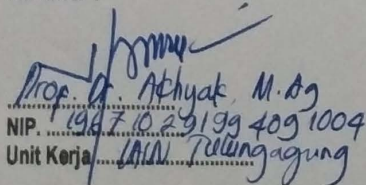 Prof. Dr. Akhyak, M.Ag
NIP. 196710291994091004
Unit Kerja IAIN Tulungagung